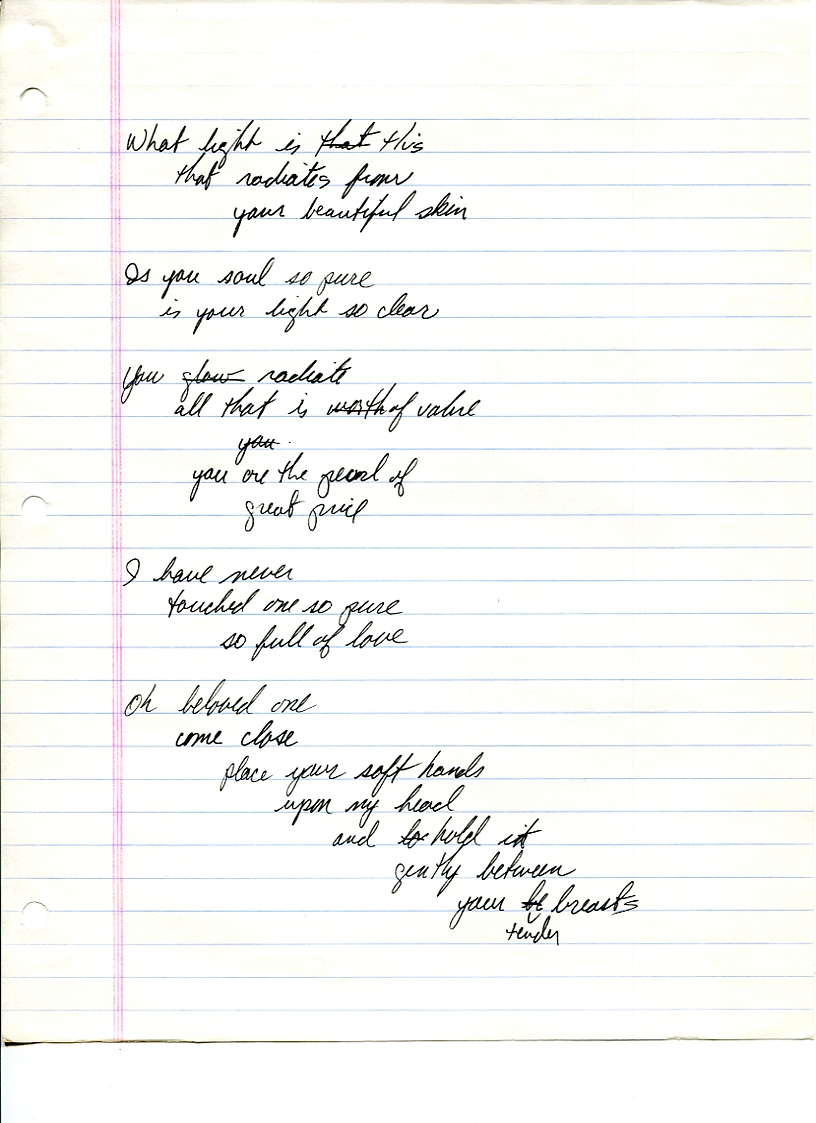 What light is ~~that~~ this
that radiates from
your beautiful skin
Is you soul so pure
is your light so clear
you ~~glow~~ radiate
all that is ~~worth~~ of value
~~you~~.
you are the pearl of
great price
I have never
touched one so pure
so full of love
Oh beloved one
come close
place your soft hands
upon my head
and ~~to~~ hold it
gently between
your ~~be~~ breasts
tender